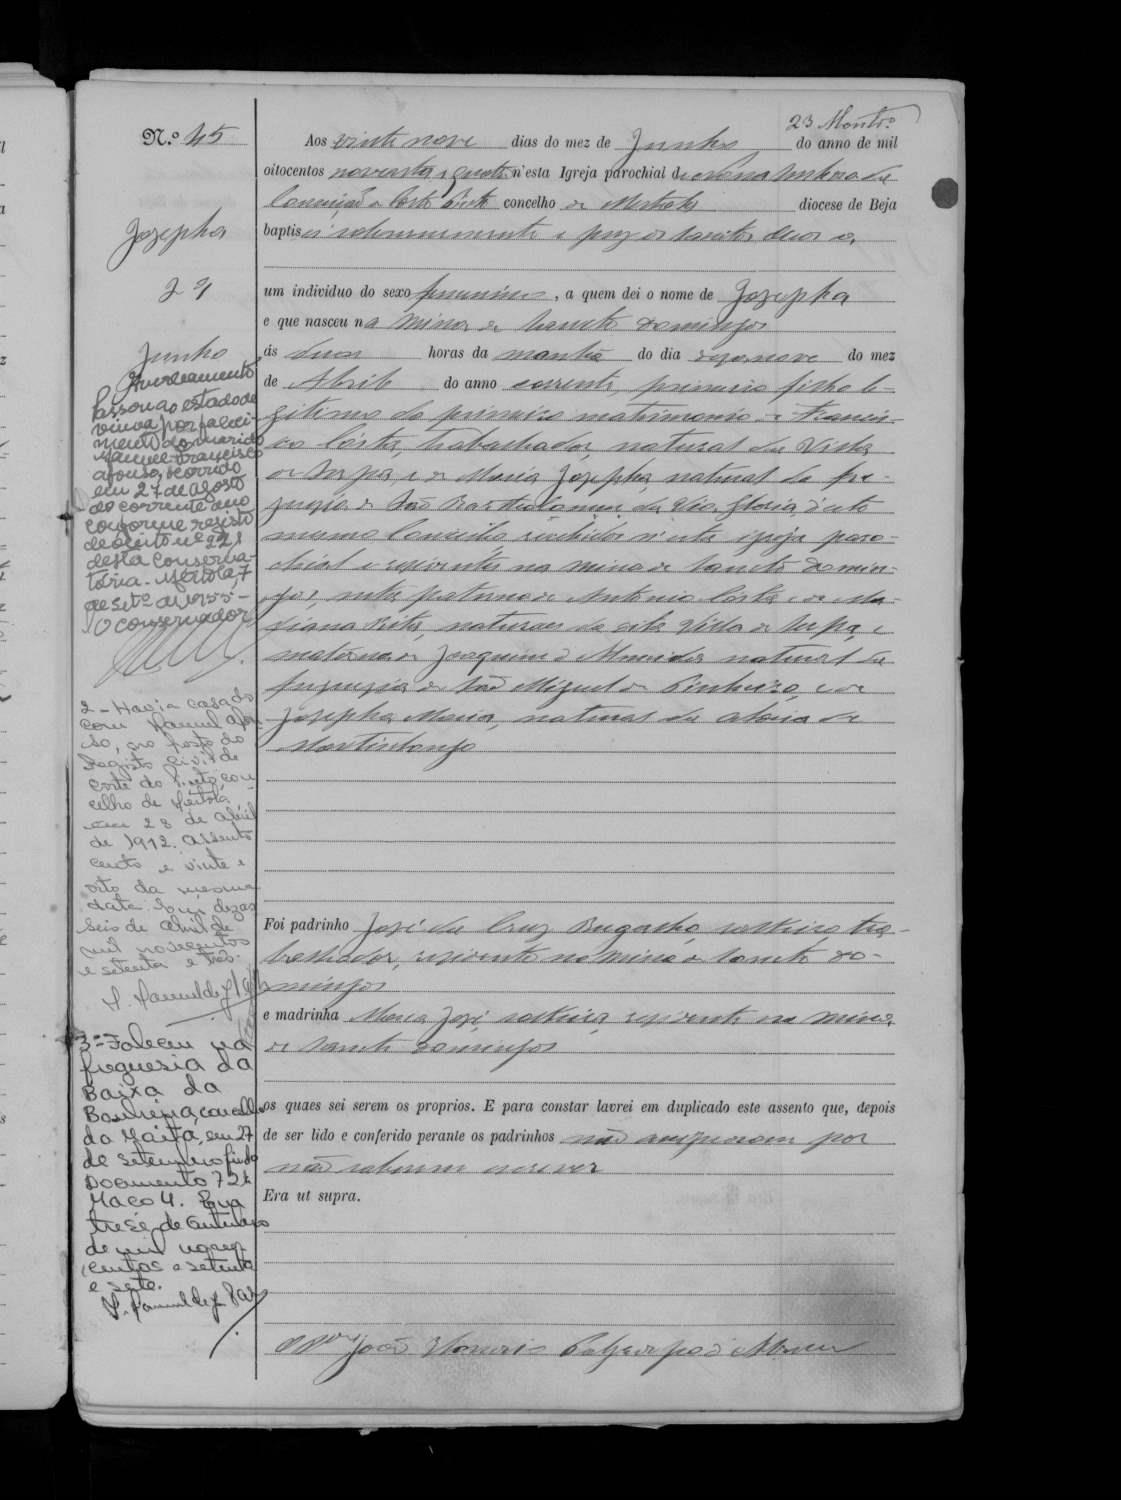 23 Montrº
N.º 45
Aos vinte nove dias do mez de Junho do anno de mil
oitocentos noventa e quatro n'esta Igreja parochial de Nossa Senhora da
Conceição de Corte Pinto concelho de Mertola diocese de Beja
baptisei solemnemente e puz os santos oleos a
um individuo do sexo femenino, a quem dei o nome de Jozepha
e que nasceu na Mina de Sancto Domingos
ás duas horas da manhã do dia dezanove do mez
de Abril do anno corrente, primeiro filho le-
gitimo do primeiro matrimonio de Francis-
co Costa, trabalhador, natural da Villa
de Serpa, e de Maria Jozepha, natural da fre-
guezia de São Bartholomeu da Via Gloria, d'este
mesmo Concelho recebidos n'esta igreja paro-
chial e rezidentes na Mina de Sancto Domin-
gos, neta paterna de Antonio Costa e de Ma-
riana Rita, naturaes da dita Villa de Serpa, e
materna de Joaquim d'Almeida natural da
freguezia de São Miguel do Pinheiro, e de
Jozepha Maria, natural da aldeia de
Martinlongo
Foi padrinho José da Cruz Bugalho, solteiro tra-
balhador, rezidente na Mina de Sancto Do-
mingos
e madrinha Maria José, solteira, rezidente na Mina
de Sancto Domingos
os quaes sei serem os proprios. E para constar lavrei em duplicado este assento que, depois
de ser lido e conferido perante os padrinhos não assignaram por
não saberem escrever
Era ut supra.
João d'Abreu
Jozepha
29
Junho
Averbamento
Passou ao estado de
viuva por faleci-
mento do marido
Manuel Francisco
Afonso, ocorrido
em 27 de Agosto
do corrente ano
conforme registo
de obito nº 221
desta Conserva-
toria. Mertola, 7
de Setº de 1955 -
O Conservador
2 - Havia casado
com Manuel Afon-
so, no Posto do
Registo Civil de
Corte do Pinto, con-
celho de Mertola
em 28 de Abril
de 1912. Assento
cento e vinte e
oito da mesma
data. Em dezas
seis de Abril de
mil novecentos
e setenta e três.
3º - Faleceu na
freguesia da
Baixa da
Banheira, concelho
da Moita, em 27
de Setembro findo
Documento 724
Maço 4. Em
treze de Outubro
de mil novecen
centos e setenta
e sete.